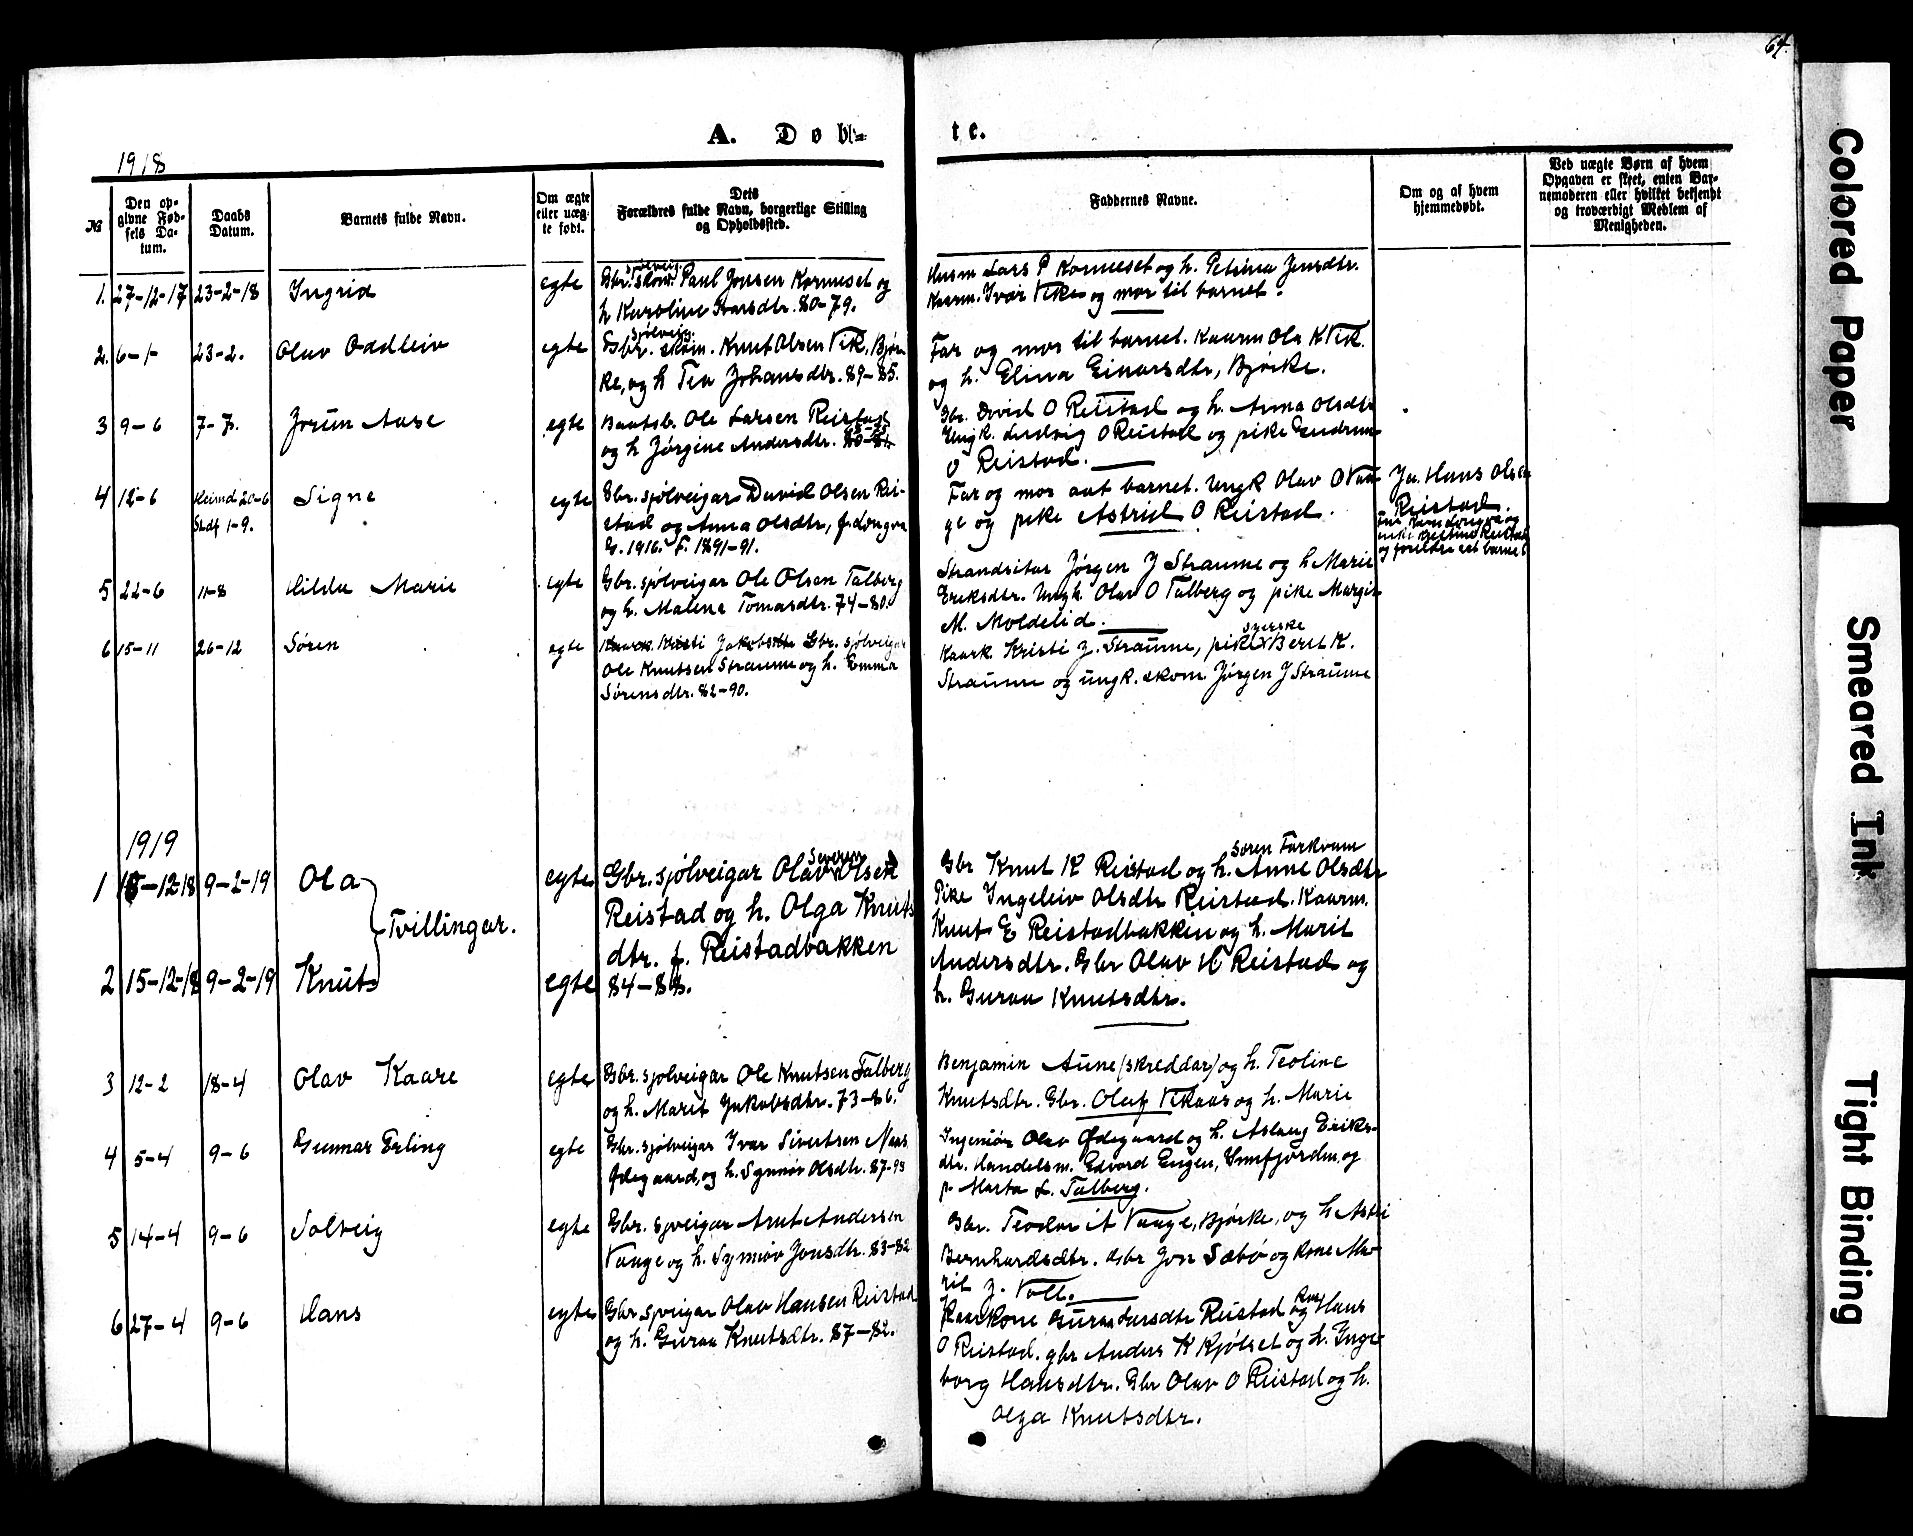 64.
A. Døb-
te.
1918
№
Den op-
givne Fød-
sels Da-
tum.
Daabs
Datum.
Barnets fulde Navn.
Om ægte
eller uæg-
te født.
Dets
Forældres fulde Navn, borgerlige Stilling
og Opholdssted.
Faddernes Navne.
Om og af hvem
hjemmedøbt.
Ved uægte Børn af hvem
Opgaven er skeet, enten Bar-
nemoderen eller hvilket bekjendt
og troværdigt Medlem af
Menigheden.
1. 27-12-17 23-2-18 Ingrid egte
sjølveig.
Gbr. skom. Paul Jonsen Kormeset og
h Karoline Ivarsdtr. 80-79.
Husm Lars P Kormeset og h. Petrina Jensdtr.
Kaarm. Ivar Vike og mor til barnet.
2. 6-1- 23-2. Olav Oddleiv egte
sjølveig.
Gbr. skom. Knut Olsen Vik, Bjør
ke, og h Tea Johansdtr. 89-85.
Far og mor til barnet. Kaarm Ola K Vik.
og h. Elina Einarsdtr, Bjørke.
3 9-6 7-7. Jorun Aase egte
Baatsb. Ole Larsen Reistad
og h Jørgine Andersdtr.
Gbr. David O Reistad og h. Anna Olsdtr
Ungk. Ludvig O Reistad og pike Gudrun
O Reistad.
4 12-6 Heimd 20-6
Stadf 1-9.
Signe egte
Gbr. sjølveigar David Olsen Rei-
stad og Anna Olsdtr, f. Longva
G. 1916. F. 1891-91.
Far og mor aat barnet. Ungk Olav O Vaa-
ge og pike Astrid O Reistad.
Ja. Hans Olsen
Reistad.
og foreldre aat barnet
5 22-6 11-8 Hilda Marie egte
Gbr. sjølveigar Ole Olsen Talberg
og h. Malene Tomasdtr. 74-80.
Strandsitar Jørgen J Straume og h Marie
Eriksdtr. Ungk. Olav O Talberg og pike Margit
M. Moldelid.
6 15-11 26-12 Søren egte
Kaark Kristi Jakobsdtr Gbr. sjølveigar
Ole Knutsen Straume og h. Emma
Sørensdtr. 82-90.
syerske
Kaark. Kristi J. Straume, pike Berit K.
Straume og ungk. skom Jørgen J Straume
1919
1 15-12-18 9-2-19 Ola egte
Tvillingar.
Severin
Gbr. sjølveigar Olav Olsen
Reistad og h. Olga Knuts
dtr. f. Reistadbakken
2 15-12-18 9-2-19 Knut egte
84-88.
Søren Farkvam
Gbr Knut K Reistad og h. Anne Olsdtr
Pike Ingeleiv Olsdtr Reistad. Kaarm.
Knut E Reistadbakken og h. Marit
Andersdtr. Gbr Olav H Reistad og
h. Guraa Knutsdtr.
3 12-2 18-4 Olav Kaare egte
Gbr. sjølveigar Ole Knutsen Talberg
og h. Marit Jakobsdtr. 73-86.
Benjamin Aune (skreddar) og h. Teoline
Knutsdtr. Gbr. Oluf Vikaas og h. Marie
4 5-4 9-6 Gunnar Erling egte
Gbr. sjølveigar Ivar Sivertsen Naas
Ødegaard, og h. Synnøv Olsdtr. 87-93
Ingeniør Olav Ødegaard og h. Aslaug Eriks-
dtr. Handelsm. Edvard Engen, Sunnfjorden, og
p. Marta L. Talberg.
5 14-4 9-6 Solveig egte
Gbr. sjveigar Arnt Andersen
Vaage og h. Synnøv Jonsdtr. 83-82
Gbr. Teodor A Vaage, Bjørke, og h Astri
Bernhardsdtr. Gbr Jon Sæbø og kone Ma-
rit J. Voll.
6 27-4 9-6 Hans egte
Gbr. sjveigar Olav Hansen Reistad
og h. Guraa Knutsdtr. 87-82.
Kaarkone Guraa Larsdtr Reistad og Hans
O Reistad. gbr Anders K Kjølset og h. Inge-
borg Hansdtr. Gbr Olav O Reistad og h.
Olga Knutsdtr.
Colored Paper
Smeared Ink
Tight Binding